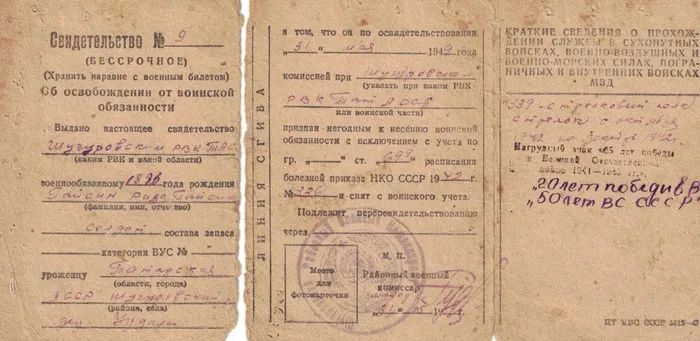 Свидетельство № 9
(БЕССРОЧНОЕ)
(Хранить наравне с военным билетом)
Об освобождении от воинской
обязанности
Выдано настоящее свидетельство
Шугуровским РВК
(каким РВК и какой области)
военнообязанному 1896 года рождения
Гайсин
(фамилия, имя, отчество)
солдат состава запаса
категории ВУС №
уроженцу Татарская
(области, города)
АССР Шугуровский
(района, села)
дер
ЛИНИЯ СГИБА
в том, что он по освидетельствовании
„31“ мая 194
комиссией при Шугуровском
(указать при каком РВК
РВК Тат АССР
или воинской части)
признан негодным к несению воинской
обязанности с исключением с учета по
гр. ст. расписания
болезней приказа НКО СССР 1942 г.
№ 336 и снят с воинского учета.
Подлежит переосвидетельствованию
через
Место
для
фотокарточки
М. П.
Районный военный
комиссар
КРАТКИЕ СВЕДЕНИЯ О ПРОХОЖ-
ДЕНИИ СЛУЖБЫ В СУХОПУТНЫХ
ВОЙСКАХ, ВОЕННО-ВОЗДУШНЫХ И
ВОЕННО-МОРСКИХ СИЛАХ, ПОГРА-
НИЧНЫХ И ВНУТРЕННИХ ВОЙСКАХ
МВД
339 - стрелковый полк
стрелок с октября
1942 по декабрь 1942г.
Нагрудный знак «25 лет победы
в Великой Отечественной
войне 1941—1945 гг.»
„20 лет победы в В
„50 лет ВС СССР“